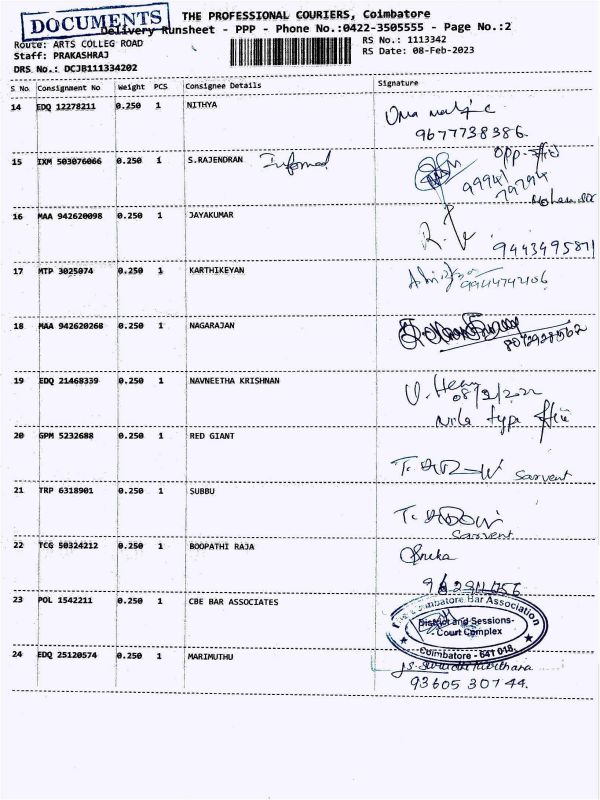 DOCUMENTS
THE PROFESSIONAL COURIERS, Coimbatore
Delivery Runsheet - PPP - Phone No.:0422-3505555 - Page No.:2
Route: ARTS COLLEG ROAD
RS No.: 1113342
Staff: PRAKASHRAJ
RS Date: 08-Feb-2023
DRS No.: DCJB111334202
S No Consignment No Weight PCS Consignee Details Signature
14 EDQ 12278211 0.250 1 NITHYA
9677738386.
15 IXM 503076066 0.250 1 S.RAJENDRAN Informed
99941
79794
16 MAA 942620098 0.250 1 JAYAKUMAR
9443495871
17 MTP 3025074 0.250 1 KARTHIKEYAN
9944742106
18 MAA 942620268 0.250 1 NAGARAJAN
19 EDQ 21468339 0.250 1 NAVNEETHA KRISHNAN
Nila type
20 GPM 5232688 0.250 1 RED GIANT
Sarvent
21 TRP 6318901 0.250 1 SUBBU
Sarvent
22 TCG 50324212 0.250 1 BOOPATHI RAJA
23 POL 1542211 0.250 1 CBE BAR ASSOCIATES
Coimbatore Bar Association
District and Sessions-
Court Complex
Coimbatore - 641 018.
24 EDQ 25120574 0.250 1 MARIMUTHU
93605 30744.